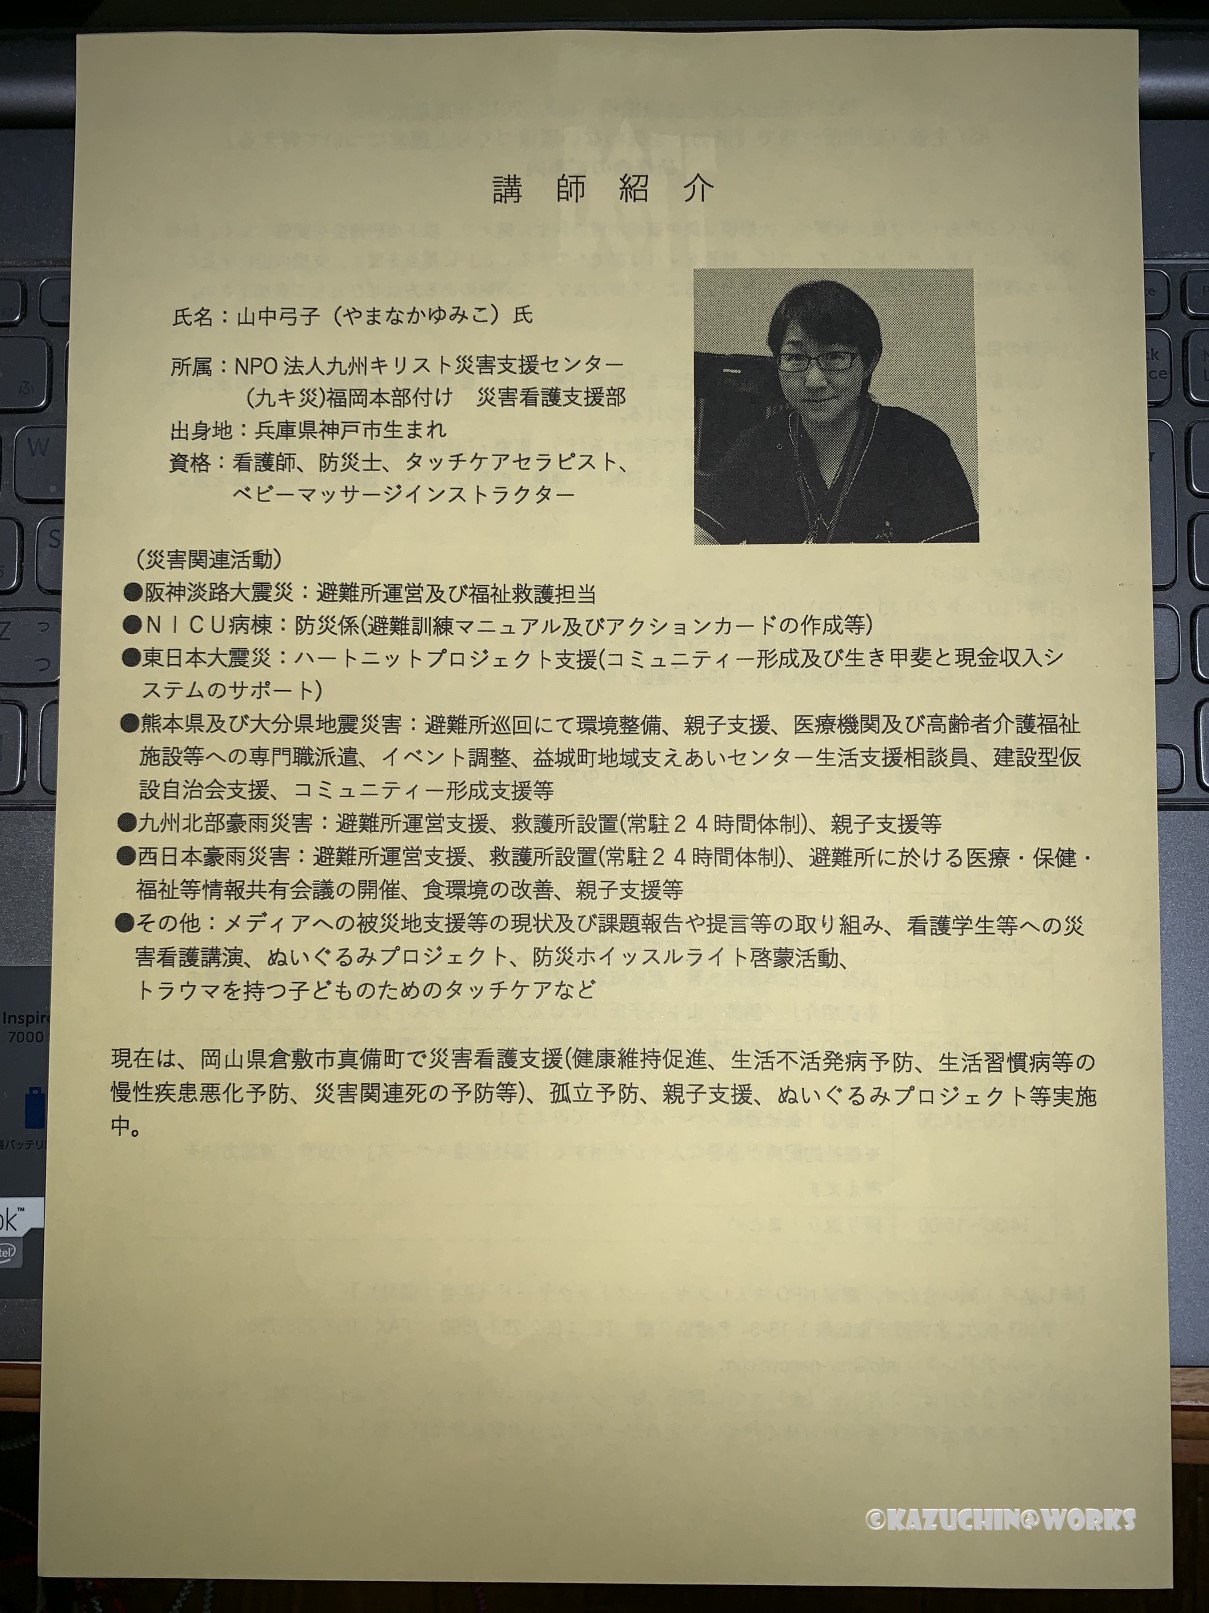 講師紹介
氏名：山中弓子（やまなかゆみこ）氏
所属：NPO 法人九州キリスト災害支援センター
(九キ災)福岡本部付け　災害看護支援部
出身地：兵庫県神戸市生まれ
資格：看護師、防災士、タッチケアセラピスト、
ベビーマッサージインストラクター
（災害関連活動）
●阪神淡路大震災：避難所運営及び福祉救護担当
●ＮＩＣＵ病棟：防災係(避難訓練マニュアル及びアクションカードの作成等)
●東日本大震災：ハートニットプロジェクト支援(コミュニティー形成及び生き甲斐と現金収入シ
ステムのサポート)
●熊本県及び大分県地震災害：避難所巡回にて環境整備、親子支援、医療機関及び高齢者介護福祉
施設等への専門職派遣、イベント調整、益城町地域支えあいセンター生活支援相談員、建設型仮
設自治会支援、コミュニティー形成支援等
●九州北部豪雨災害：避難所運営支援、救護所設置(常駐２４時間体制)、親子支援等
●西日本豪雨災害：避難所運営支援、救護所設置(常駐２４時間体制)、避難所に於ける医療・保健・
福祉等情報共有会議の開催、食環境の改善、親子支援等
●その他：メディアへの被災地支援等の現状及び課題報告や提言等の取り組み、看護学生等への災
害看護講演、ぬいぐるみプロジェクト、防災ホイッスルライト啓蒙活動、
トラウマを持つ子どものためのタッチケアなど
現在は、岡山県倉敷市真備町で災害看護支援(健康維持促進、生活不活発病予防、生活習慣病等の
慢性疾患悪化予防、災害関連死の予防等)、孤立予防、親子支援、ぬいぐるみプロジェクト等実施
中。
Inspir
7000
W
S
Z
©KAZUCHIN@WORKS